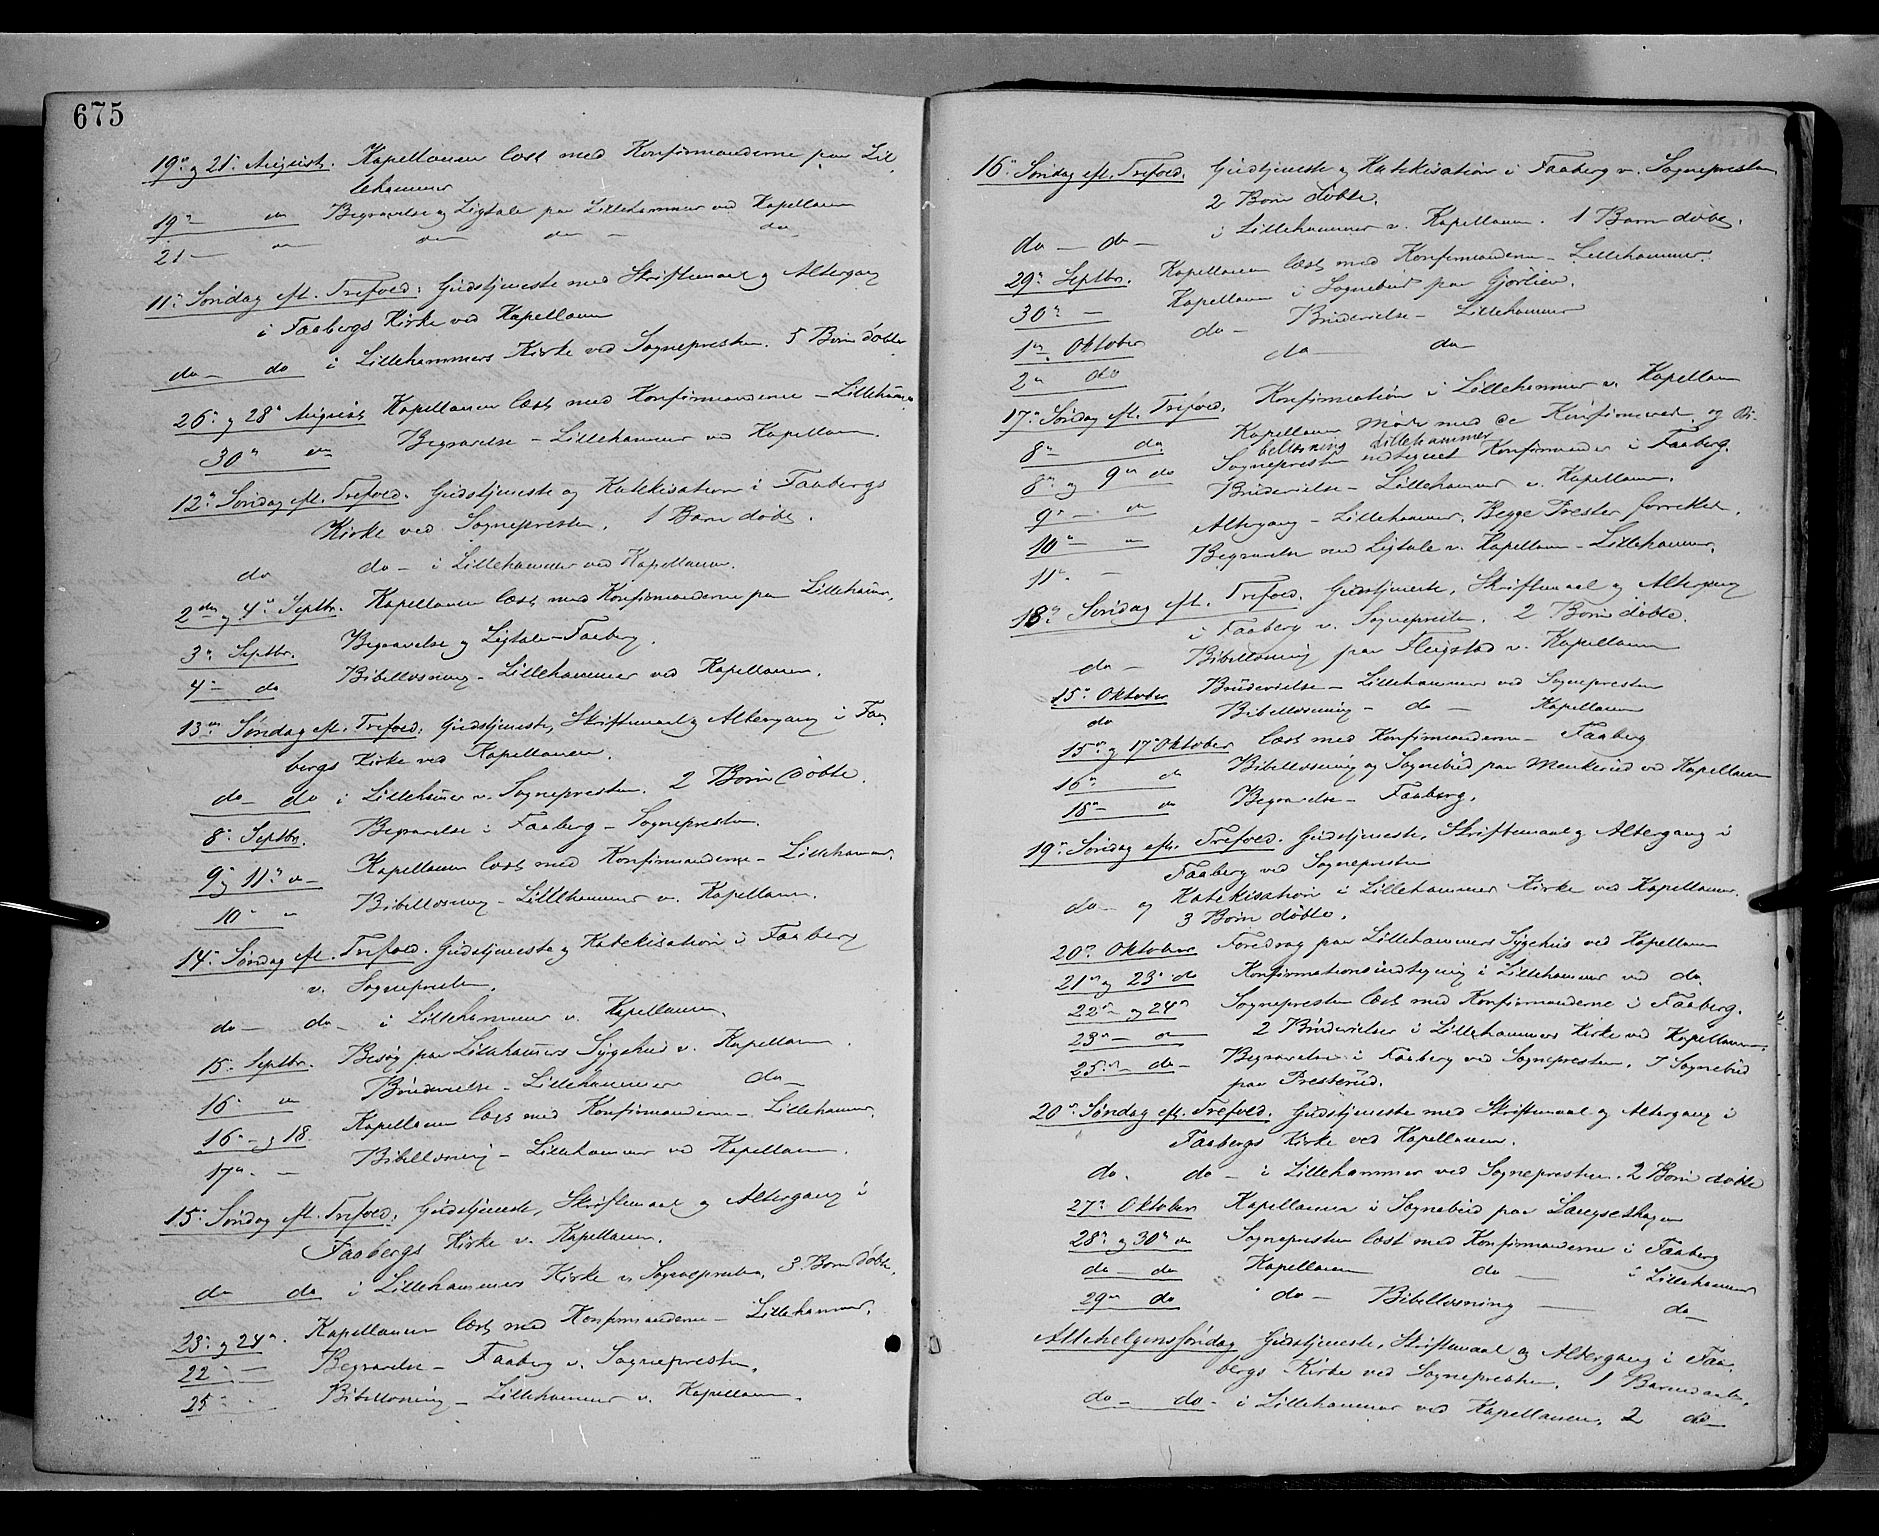 675
19de og 21de August. Kapellanen læst med Konfirmanderne paa Lil-
lehammer
19de do Begravelse og Ligtale paa Lillehammer ved Kapellanen
21 — do do do — do
11te Søndag eft. Trefold: Gudstjeneste med Skriftemaal og Altergang
i Faabergs Kirke ved Kapellanen
do — do i Lillehammers Kirke ved Sognepresten. 5 Børn døbte
26de og 28de August Kapellanen læst med Konfirmanderne — Lillehamer
30te do Begravelse — Lillehammer ved Kapellanen.
12te Søndag eft. Trefold. Gudstjeneste og Katekisation i Faabergs
Kirke ved Sognepresten. 1 Barn døbt.
do do — i Lillehammer ved Kapellanen.
2den og 4de Septbr. Kapellanen læst med Konfirmanderne paa Lillehamer.
3de Septbr. Begravelse og Ligtale — Faaberg.
4 — do Bibellæsning — Lillehammer ved Kapellanen.
13de Søndag eft. Trefold: Gudstjeneste, Skriftemaal og Altergang i Faa-
bergs Kirke ved Kapellanen.
do — do i Lillehamer v. Sognepresten. 2 Børn døbte.
8de Septbr. Begravelse i Faaberg — Sognepresten.
9de og 11te do — Kapellanen læst med Konfirmanderne — Lillehamer.
10de " Bibellæsning — Lillehammer v. Kapellanen.
14de Søndag eft. Trefold. Gudstjeneste og Katekisation i Faaberg
v. Sognepresten.
do — do — i Lillehammer v. Kapellanen.
15de Septbr. Besøg paa Lillehamers Sygehus v. Kapellanen.
16de do Brudevielse — Lillehammer do —
16de — og 18. Kapellanen læst med Konfirmanderne — Lillehamer.
17de — Bibellæsning — Lillehammer ved Kapellanen.
15de Søndag eft. Trefold: Gudstjeneste, Skriftemaal og Altergang i
Faabergs Kirke v. Kapellanen.
do do i Lillehammers Kirke v. Sognepresten. 3 Børn døbte.
23de og 24de. Kapellanen læst med Konfirmanderne — Lillehammer.
22 — — Begravelse — Faaberg v. Sognepresten.
25de " Bibellæsning — Lillehammer v. Kapellanen.
16de Søndag eft. Trefold. Gudstjeneste og Katekisation i Faaberg v. Sognepresten
2 Børn døbte.
do — do — i Lillehammer v. Kapellanen. 1 Barn døbt.
29de Septbr. Kapellanen læst med Konfirmanderne — Lillehammer.
30te — Kapellanen i Sognebud paa Gjørlien.
1ste Oktober do — Brudevielse — Lillehammer
2den do do — do —
17de Søndag eft. Trefold. Konfirmation i Lillehammer v. Kapellanen
8de do Kapellanen Møte med de Konfirmerede og Bi-
bellæsning Lillehammer
8de og 9de do Sognepresten indtegnet Konfirmander i Faaberg.
9de — do Brudevielse — Lillehammer v. Kapellanen.
10de — " Altergang — Lillehammer. Begge Prester forrettet.
11te — Begravelse med Ligtale v. Kapellanen — Lillehammer.
18de Søndag eft. Trefold. Gudstjeneste, Skriftemaal og Altergang
i Faaberg v. Sognepresten. 2 Børn døbte.
do — Bibellæsning paa Fliigstad v. Kapellanen
15de Oktober Brudevielse — Lillehammer ved Sognepresten
do Bibellæsning — do — Kapellanen
15de og 17de Oktober læst med Konfirmanderne — Faaberg
16de do Bibellæsning og Sognebud paa Menkerud ved Kapellanen
18de — do Begravelse — Faaberg.
19de Søndag eft. Trefold. Gudstjeneste, Skriftemaal og Altergang i
Faaberg ved Sognepresten
do — og Katekisation i Lillehammer Kirke ved Kapellanen.
3 Børn døbte.
20de Oktober Foredrag paa Lillehammers Sygehus ved Kapellanen
21de og 23de do Konfirmationsindtegning i Lillehammer ved do.
22de — og 24de Sognepresten læst med Konfirmanderne i Faaberg.
23de — do — 2 Brudevielser i Lillehammers Kirke ved Kapellanen.
25de — do — Begravelse i Faaberg ved Sognepresten. I Sognebud
paa Presterud.
20de Søndag eft. Trefold. Gudstjeneste med Skriftemaal og Altergang i
Faabergs Kirke ved Kapellanen.
do. do — i Lillehammer ved Sognepresten. 2 Børn døbte
27de Oktober Kapellanen i Sognebud paa Langsethagen
28de og 30te do Sognepresten læst med Konfirmanderne i Faaberg
do — do Kapellanen do — i Lillehammer
29de do do — Bibellæsning — do —
Allehelgenssøndag Gudstjeneste, Skriftemaal og Altergang i Faa-
bergs Kirke ved Sognepresten. 1 Barnedaab.
do — do — i Lillehammer ved Kapellanen. 2 do —